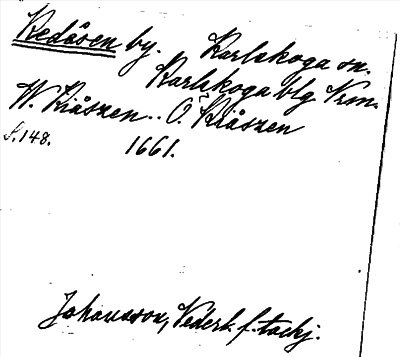 Kedåsen by. Karlskoga sn.
Karlskoga blg Vrm.
W. Kiåszen .. Ö. Kiåszen
S. 148. 1661.
Johansson, Nederk. f. tackj.